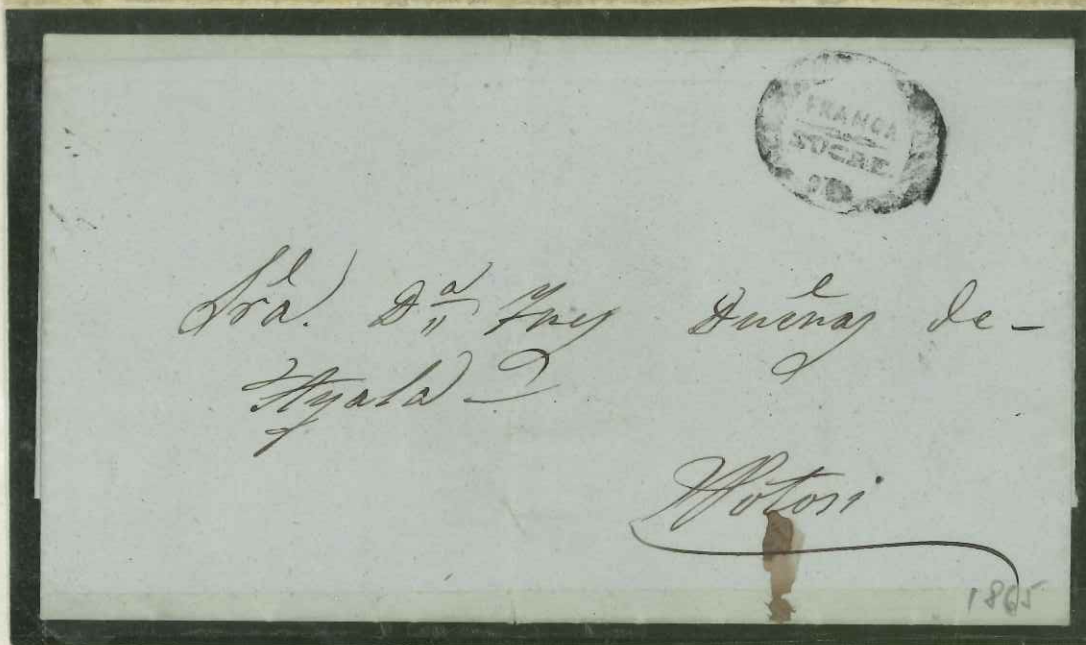 FRANCA
SUCRE
Sra. Da Ines Dueñas de-
Ayala
Potosi
1865